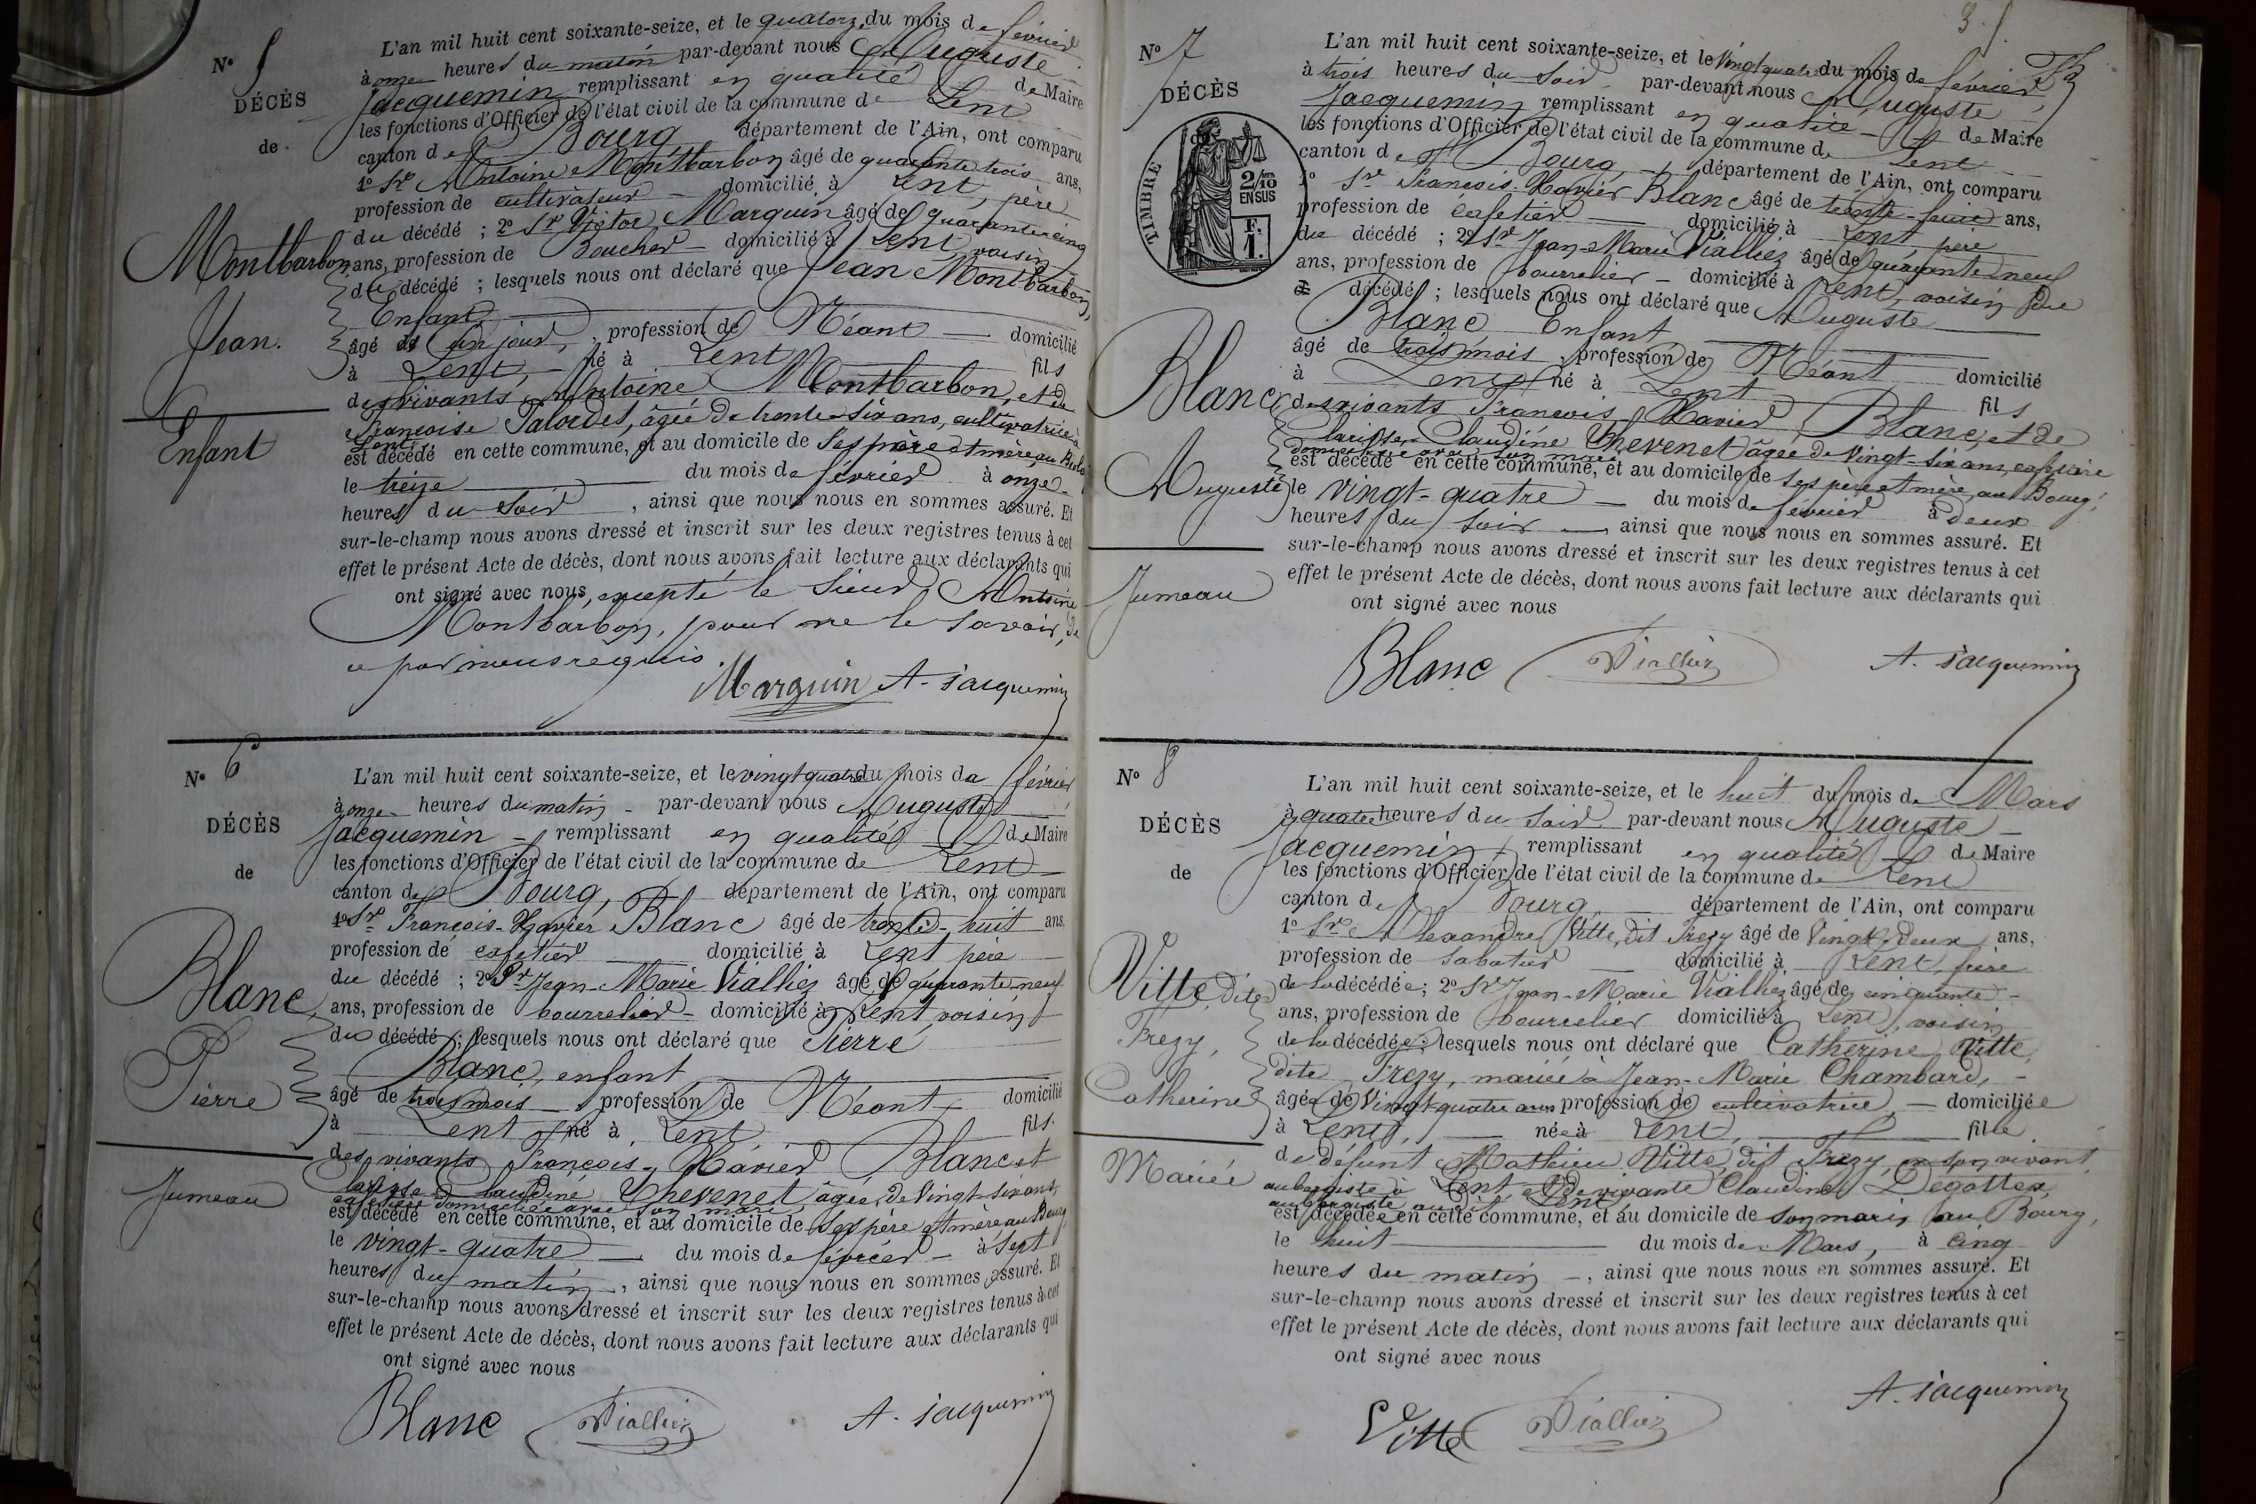 N° 5
DÉCÈS
de
Montbarbon
Jean.
Enfant
L'an mil huit cent soixante-seize, et le quatorze du mois de février
à onze heures du matin par-devant nous Auguste
Jacquemin remplissant en qualité de Maire
les fonctions d'Officier de l'état civil de la commune de Lent
canton de Bourg département de l'Ain, ont comparu
1° Sr Antoine Montbarbon âgé de quarante trois ans,
profession de cultivateur domicilié à Lent, père
du décédé ; 2° Sr Victor Marguin âgé de quarante cinq
ans, profession de Boucher domicilié à Lent, voisin
du décédé ; lesquels nous ont déclaré que Jean Montbarbon,
Enfant
âgé de un jour, profession de Néant domicilié
à Lent, né à Lent fils
des vivants Antoine Montbarbon, et de
Françoise Talordet, âgée de trente-six ans, cultivatrice à
Lent
est décédé en cette commune, et au domicile de ses père et mère au
le treize du mois de février à onze
heures du soir, ainsi que nous nous en sommes assuré. Et
sur-le-champ nous avons dressé et inscrit sur les deux registres tenus à cet
effet le présent Acte de décès, dont nous avons fait lecture aux déclarants qui
ont signé avec nous, excepté le sieur Antoine
Montbarbon, pour ne le savoir, de
ce par nous requis.
Marguin A. Jacquemin
N° 6
DÉCÈS
de
Blanc
Pierre
Jumeau
L'an mil huit cent soixante-seize, et le vingt quatre du mois de février
à onze heures du matin par-devant nous Auguste
Jacquemin remplissant en qualité de Maire
les fonctions d'Officier de l'état civil de la commune de Lent
canton de Bourg, département de l'Ain, ont comparu
1° Sr François-Xavier Blanc âgé de trente-huit ans
profession de cafetier domicilié à Lent père
du décédé ; 2° Sr Jean-Marie Vialliez âgé de quarante-neuf
ans, profession de bourrelier domicilié à Lent, voisin
du décédé ; lesquels nous ont déclaré que Pierre
Blanc, enfant
âgé de trois mois, profession de Néant domicilié
à Lent né à Lent, fils.
des vivants François-Xavier Blanc et
Clarisse Claudine Thevenet âgée de vingt-six ans,
cafetière domiciliée avec son mari,
est décédé en cette commune, et au domicile de ses père et mère au Bourg,
le vingt-quatre du mois de février à sept
heures du matin, ainsi que nous nous en sommes assuré. Et
sur-le-champ nous avons dressé et inscrit sur les deux registres tenus à cet
effet le présent Acte de décès, dont nous avons fait lecture aux déclarants qui
ont signé avec nous
Blanc Vialliez A. Jacquemin
3
N° 7
DÉCÈS
TIMBRE
2/10
EN SUS
F.
1.
Blanc
Auguste
Jumeau
L'an mil huit cent soixante-seize, et le vingt quatre du mois de février
à trois heures du soir par-devant nous Auguste
Jacquemin remplissant en qualité de Maire
les fonctions d'Officier de l'état civil de la commune de Lent
canton de Bourg département de l'Ain, ont comparu
1° Sr François-Xavier Blanc âgé de trente-huit ans,
profession de cafetier domicilié à Lent, père
du décédé ; 2° Sr Jean-Marie Vialliez âgé de quarante neuf
ans, profession de bourrelier domicilié à Lent, voisin du
décédé ; lesquels nous ont déclaré que Auguste
Blanc Enfant
âgé de trois mois, profession de Néant domicilié
à Lent né à Lent fils
des vivants François Xavier Blanc, et de
Clarisse Claudine Thevenet âgée de vingt-six ans, cafetière
domiciliée avec son mari
est décédé en cette commune, et au domicile de ses père et mère, au Bourg,
le vingt-quatre du mois de février à deux
heures du soir ainsi que nous nous en sommes assuré. Et
sur-le-champ nous avons dressé et inscrit sur les deux registres tenus à cet
effet le présent Acte de décès, dont nous avons fait lecture aux déclarants qui
ont signé avec nous
Blanc Vialliez A. Jacquemin
N° 8
DÉCÈS
de
Vitte, dite
Frezy,
Catherine
Mariée
L'an mil huit cent soixante-seize, et le huit du mois de Mars
à quatre heures du soir par-devant nous Auguste
Jacquemin, remplissant en qualité de Maire
les fonctions d'Officier de l'état civil de la commune de Lent
canton de Bourg département de l'Ain, ont comparu
1° Sr Alexandre Vitte, dit Frezy âgé de vingt-deux ans,
profession de sabotier domicilié à Lent, frère
de la décédée ; 2° Sr Jean-Marie Vialliez âgé de cinquante
ans, profession de bourrelier domicilié à Lent, voisin
de la décédée ; lesquels nous ont déclaré que Catherine Vitte,
dite Frezy, mariée à Jean-Marie Chambard,
âgée de vingt quatre ans profession de cultivatrice, domiciliée
à Lent, née à Lent, fille
de défunt Mathieu Vitte, dit Frezy, en son vivant
aubergiste à Lent et de vivante Claudine Degottex,
aubergiste audit Lent,
est décédée en cette commune, et au domicile de son mari, au Bourg,
le huit du mois de Mars, à cinq
heures du matin, ainsi que nous nous en sommes assuré. Et
sur-le-champ nous avons dressé et inscrit sur les deux registres tenus à cet
effet le présent Acte de décès, dont nous avons fait lecture aux déclarants qui
ont signé avec nous
Vitte Vialliez A. Jacquemin